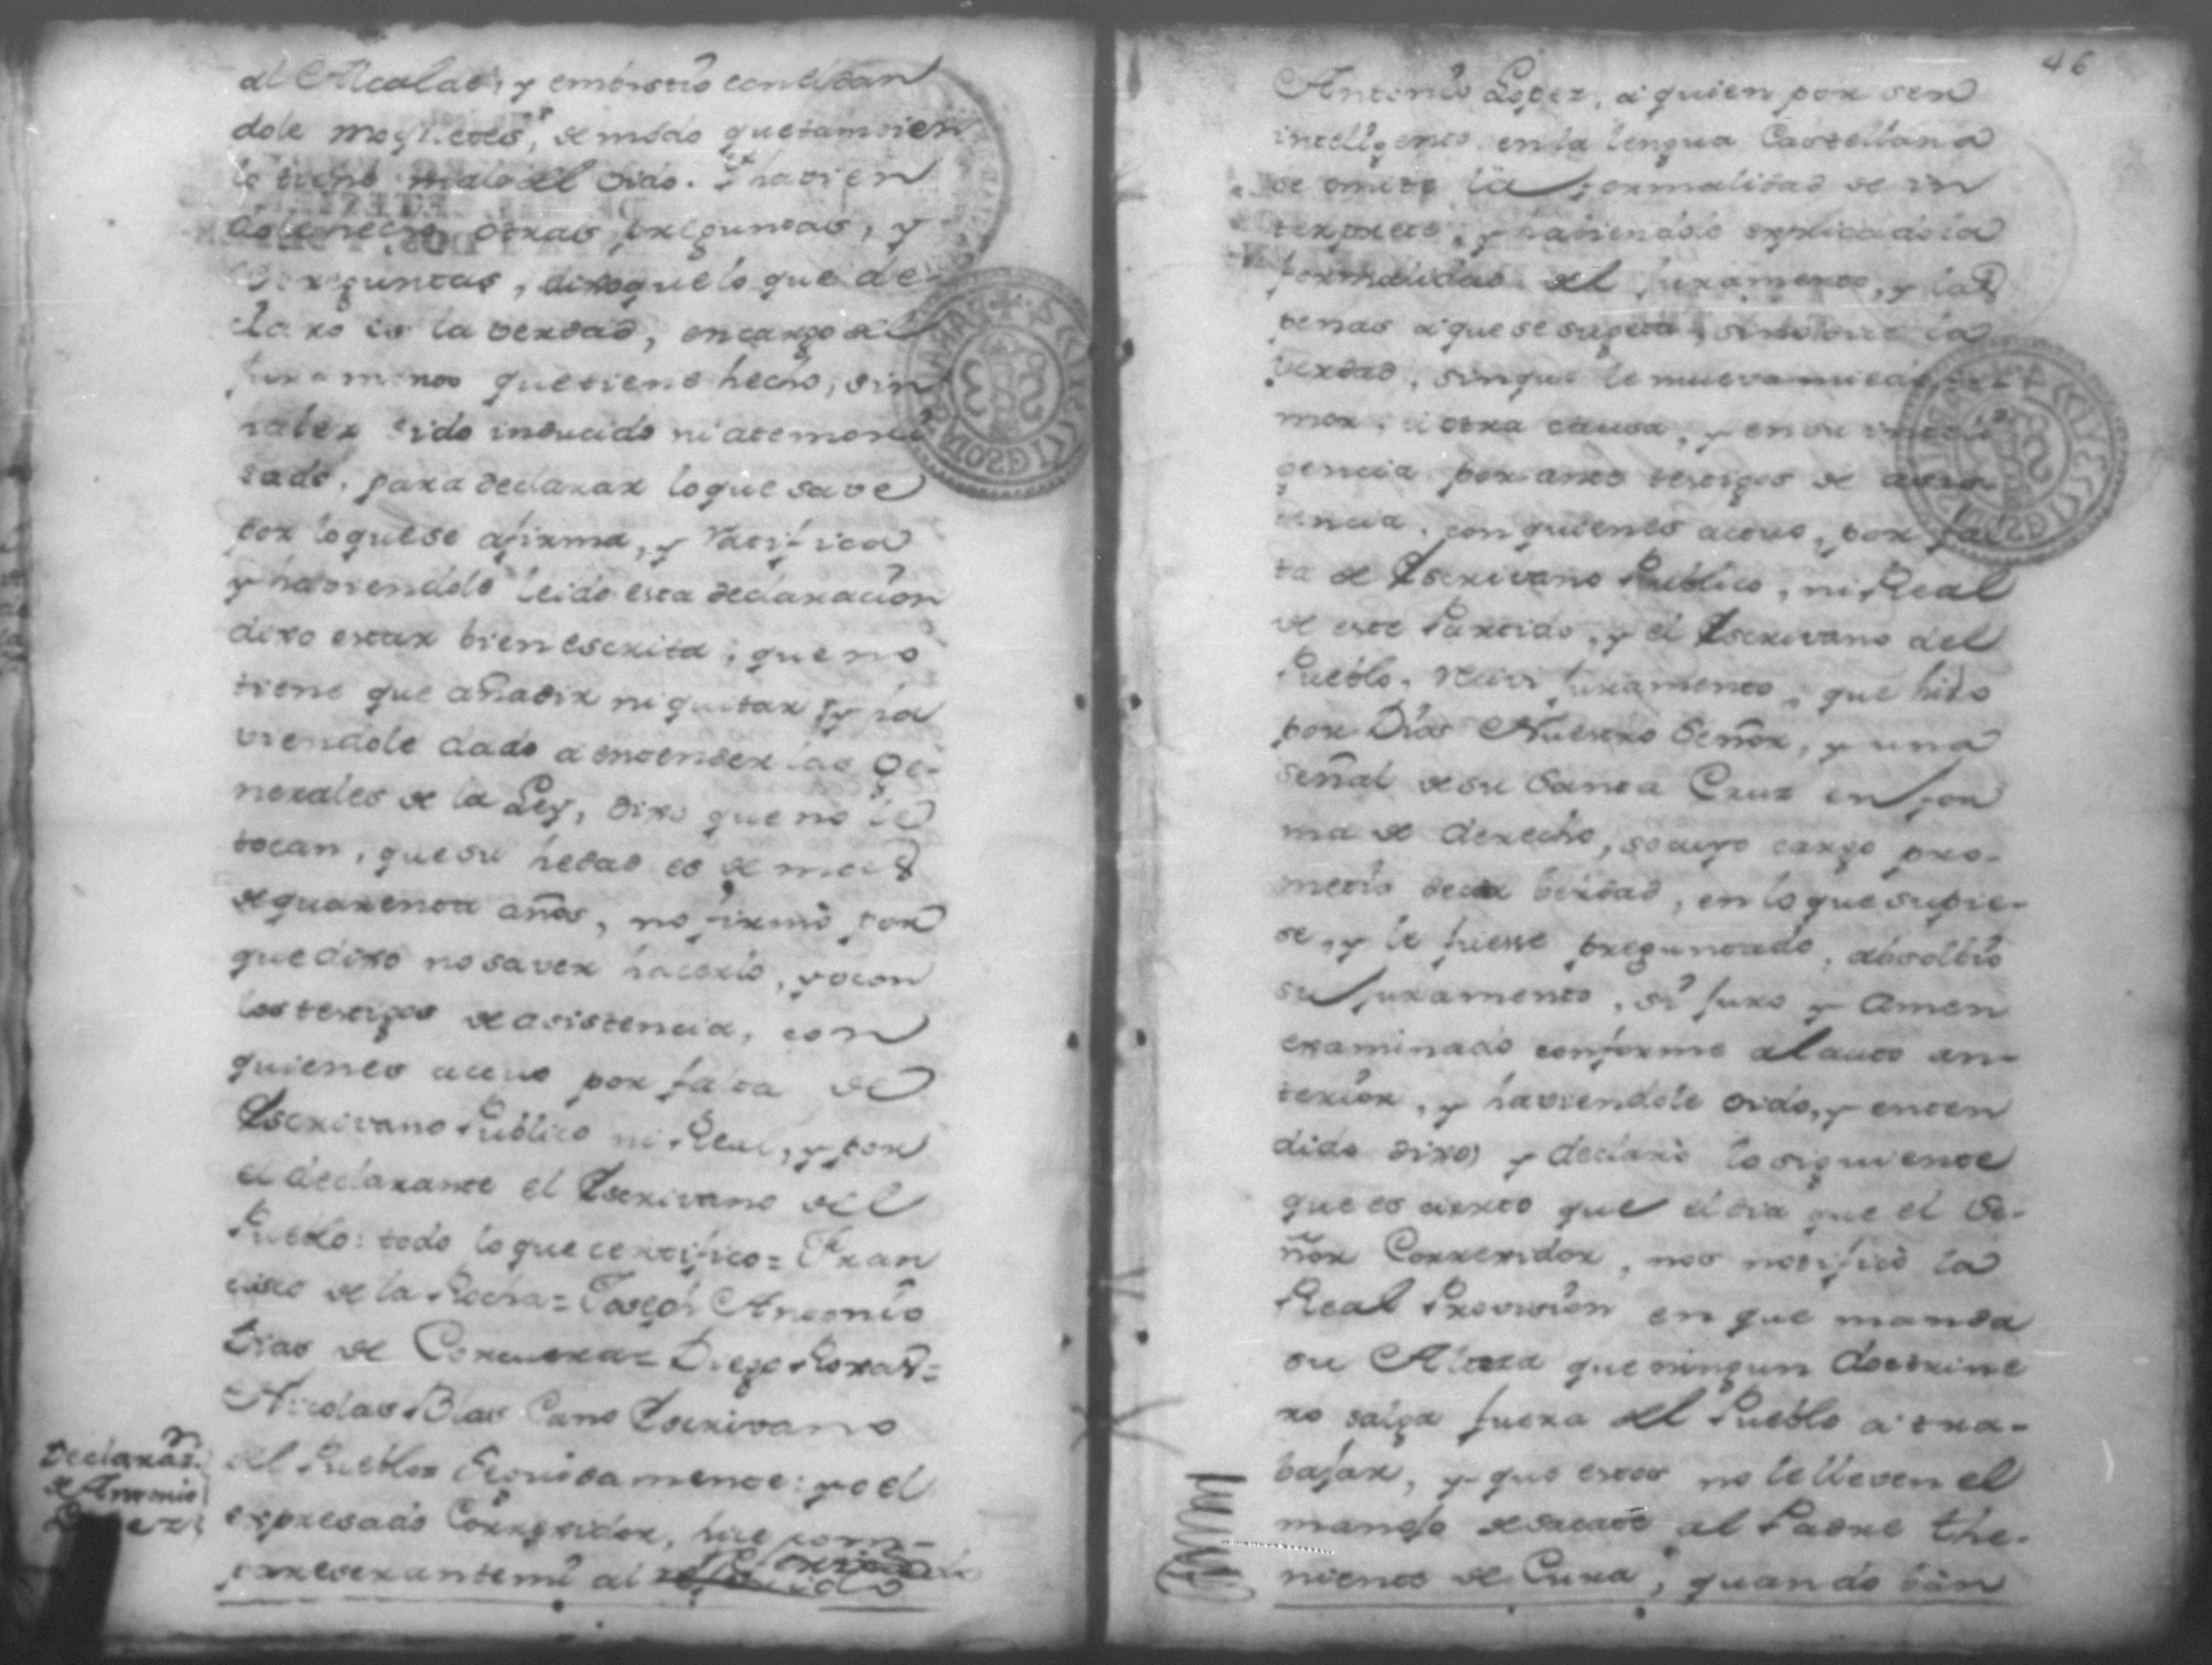 al Alcalde, y embistio con el dan
dole mogicetes, de modo que tambien
le tiene malo el oido. Y havien
dole hecho otras preguntas, y
repreguntas, dixo que lo que de-
claro es la verdad, en cargo del
juramento que tiene hecho, sin
haber sido inducido ni atemori
zado, para declarar lo que save
por lo que se afirma, y ratifica
y haviendole leido esta declaracion
dixo estar bien escrita, que no
tiene que añadir ni quitar, y ha
viendole dado a entender las ge-
nerales de la Ley, dixo que no le
tocan, que su hedad es de mas
de quarenta años, no firmó por
que dixo no saver hacerlo, yo con
los testigos de asistencia, con
quienes actuo por falta de
Escrivano Publico ni Real, y por
el declarante el Escrivano del
Pueblo: todo lo que certifico = Fran
cisco de la Rocha = Joseph Antonio
Dias de Corcuera = Diego Roxas =
Nicolas Blas Cano Escrivano
del Pueblo = Seguidamente: yo el
expresado Corregidor, hice com-
parecer ante mi al
Declaraon.
de Antonio
Lopez
46
Antonio Lopez, a quien por ser
intelligente en la lengua Castellana
se omite la formalidad de in
terprete, y haviendole explicado la
formalidad del juramento, y las
penas a que se sugeta, si no dice la
verdad, sin que le mueva miedo,
mor, u otra causa, y en su inteli
gencia por ante testigos de asis
tencia, con quienes actuo, por fal
ta de Escrivano Publico, ni Real
de este Partido, y el Escrivano del
Pueblo, recivi juramento, que hizo
por Dios Nuestro Señor, y una
señal de su Santa Cruz en for
ma de derecho, so cuyo cargo pro-
metio decir berdad, en lo que supie-
se, y le fuesse preguntado, absolbio
su juramento, si juro y Amen
examinado conforme al auto an-
terior, y haviendole oido, y enten
dido dixo, y declaró lo siguiente
que es cierto que el dia que el Se-
ñor Correxidor, nos notificó la
Real Provision en que manda
su Alteza que ningun doctrine
ro salga fuera del Pueblo a tra-
bajar, y que estos no le lleven el
manejo de sacate al Padre The-
niente de Cura, quando van